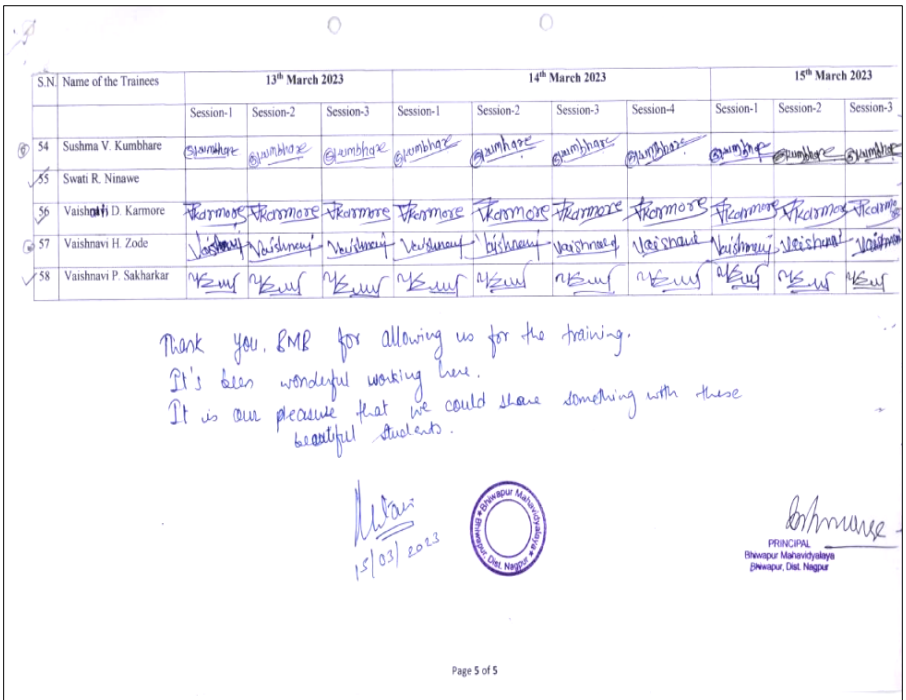 S.N. Name of the Trainees 13th March 2023 14th March 2023 15th March 2023
Session-1 Session-2 Session-3 Session-1 Session-2 Session-3 Session-4 Session-1 Session-2 Session-3
54 Sushma V. Kumbhare Skumbhare Skumbhare Skumbhare Skumbhare Skumbhare Skumbhare Skumbhare Skumbhare Skumbhare Skumbhare
55 Swati R. Ninawe
56 Vaishnavi D. Karmore VKarmore VKarmore VKarmore VKarmore VKarmore VKarmore VKarmore VKarmore VKarmore
57 Vaishnavi H. Zode Vaishnavi Vaishnavi Vaishnavi Vaishnavi Vaishnavi Vaishnavi Vaishnavi Vaishnavi Vaishnavi Vaishnavi
58 Vaishnavi P. Sakharkar
Thank you, BMB for allowing us for the training.
It's been wonderful working here.
It is our pleasure that we could share something with these
beautiful students.
15/03/2023
Bhiwapur Mahavidyalaya
Bhiwapur, Dist. Nagpur
PRINCIPAL
Bhiwapur Mahavidyalaya
Bhiwapur, Dist. Nagpur
Page 5 of 5